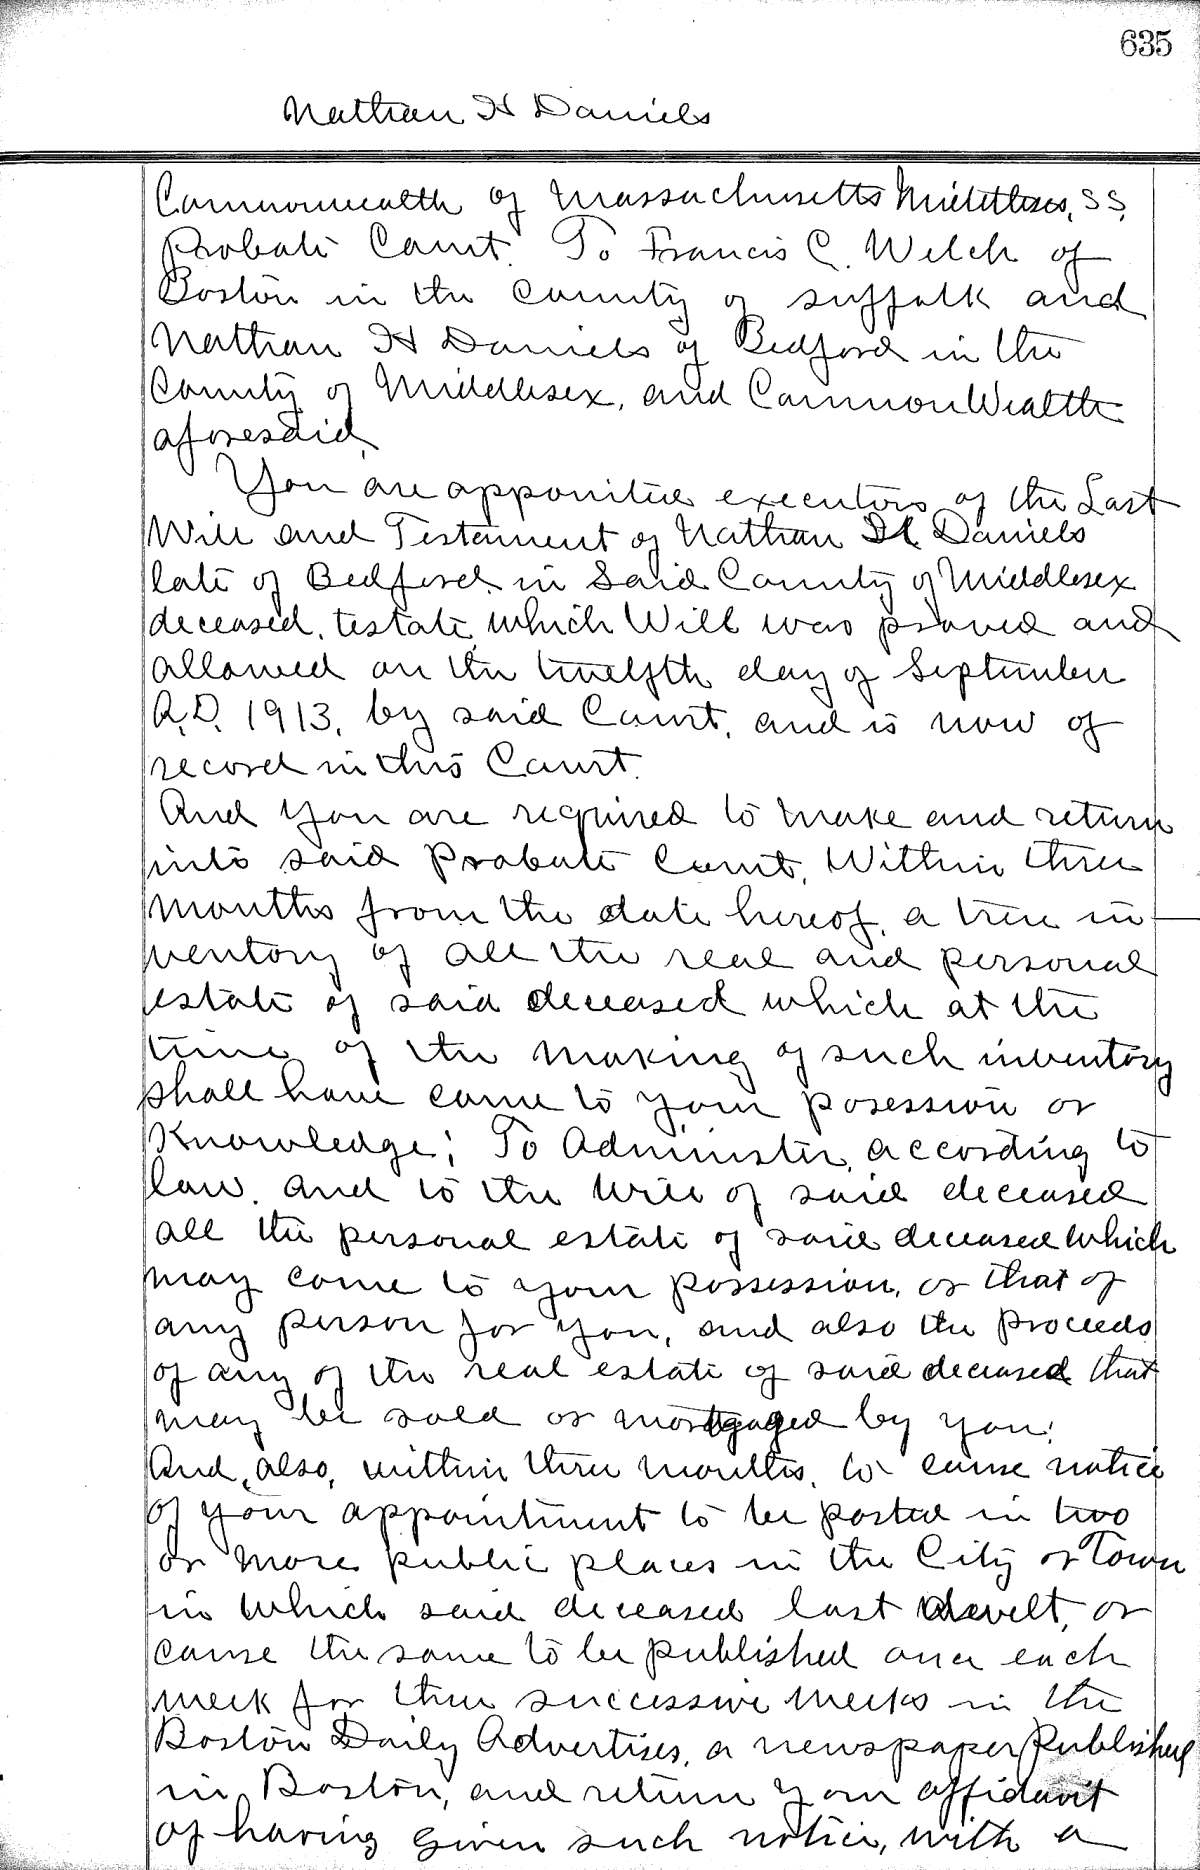 635
Nathan H Daniels
Commonwealth of Massachusetts Middlesex, SS,
Probate Court. To Francis C. Welch of
Boston in the County of Suffolk and
Nathan H Daniels of Bedford in the
County of Middlesex, and CommonWealth
aforesaid,
You are appointed executors of the Last
Will and Testament of Nathan H Daniels
late of Bedford in Said County of Middlesex
deceased, testate, which Will was proved and
allowed on the twelfth day of September
A.D. 1913, by said Court, and is now of
record in this Court.
And you are required to make and return
into said Probate Court, Within three
months from the date hereof, a true in
ventory of all the real and personal
estate of said deceased which at the
time of the making of such inventory
shall have come to your posession or
Knowledge; To Administer, according to
law, and to the Will of said deceased
all the personal estate of said deceased which
may come to your possession, or that of
any person for you, and also the proceeds
of any of the real estate of said deceased that
may be sold or mortgaged by you;
And, also, within three months, to cause notice
of your appointment to be posted in two
or more public places in the City or Town
in which said deceased last dwelt, or
cause the same to be published once each
week for three successive weeks in the
Boston Daily Advertiser, a newspaper published
in Boston, and return your affidavit
of having given such notice, with a